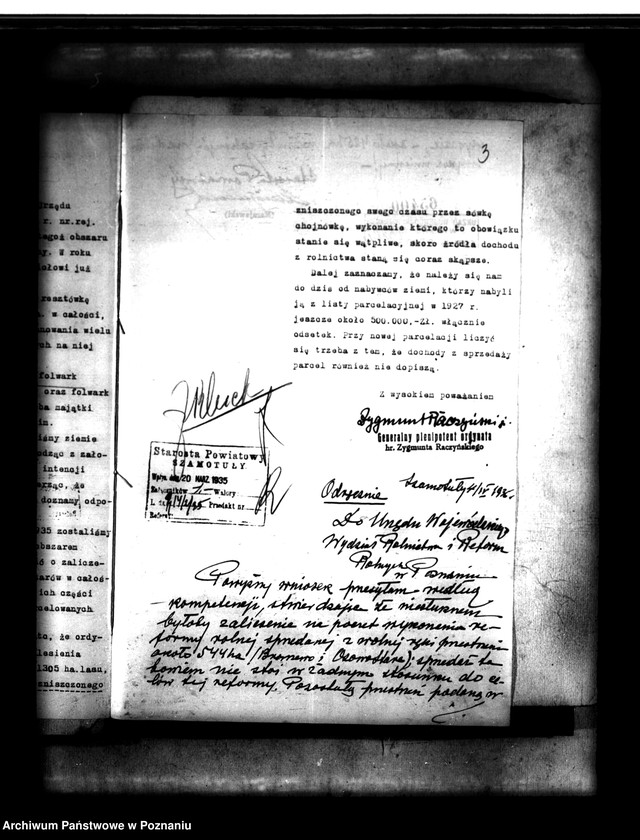 3
rzędu
r. nr.rej.
egoż obszaru
y. W roku
ołowi już
resztówkę
a. w całości,
nowania wielu
ych na niej
folwark
oraz folwark
ba majątki
in.
iany ziemie
odząc z zało-
intencji
arząc, że
doznamy odpo-
935 zostaliśmy
obszarem
o o zalicze-
arów w całoś-
ich części
celowanych
to, że ordy-
lesienia
1305 ha.lasu,
zniszczonego
zniszczonego swego czasu przez sówkę
chojnówkę, wykonanie którego to obowiązku
stanie się wątpliwe, skoro źródła dochodu
z rolnictwa staną się coraz skąpsze.
Dalej zaznaczamy, że należy się nam
do dziś od nabywców ziemi, którzy nabyli
ją z listy parcelacyjnej w 1927 r.
jeszcze około 500.000,-Zł. włącznie
odsetek. Przy nowej parcelacji liczyć
się trzeba z tem, że dochody z sprzedaży
parcel również nie dopiszą.
Z wysokiem poważaniem
Zygmunt Raczyński
Generalny plenipotent ordynata
hr. Zygmunta Raczyńskiego
Starosta Powiatowy
SZAMOTUŁY.
Wpłyn. dnia 20 MARZ. 1935
Załączników Walory
L. dz. Przedakt nr.
Referat
Odręcznie
Szamotuły
Do Urzędu Wojewódzkiego
Wydział Rolnictwa i Reform
Rolnych
w Poznaniu
Powyższy wniosek przesyłam według
kompetencji, stwierdzając że niesłusznem
byłoby zaliczenie na poczet wykonania re-
formy rolnej sprzedanej z wolnej ręki przestrzeni
około 544 ha sprzedaż ta
bowiem nie stoi w żadnym stosunku do ce-
lów tej reformy. Pozostałą przestrzeń podaną w
Archiwum Państwowe w Poznaniu